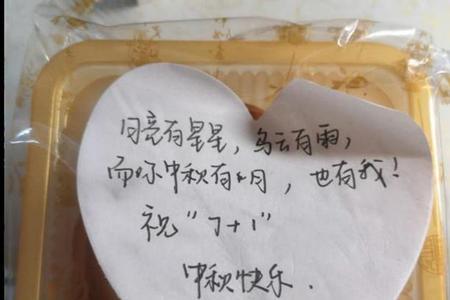 月亮有星星，乌云有雨，
而你中秋有月，也有我！
祝“7+1”
中秋快乐．